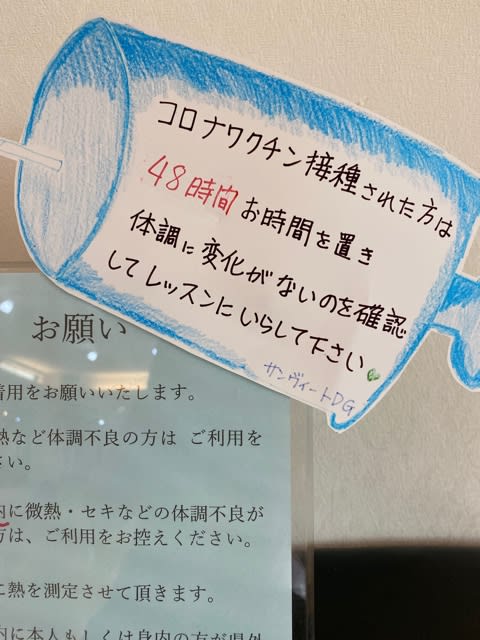 コロナワクチン接種された方は
48時間お時間を置き
体調に変化がないのを確認
してレッスンにいらして下さい
サンヴィートDG
お願い
着用をお願いいたします。
熱など体調不良の方は ご利用を
さい。
内に微熱・セキなどの体調不良が
方は、ご利用をお控えください。
に熱を測定させて頂きます。
内に本人もしくは身内の方が県外